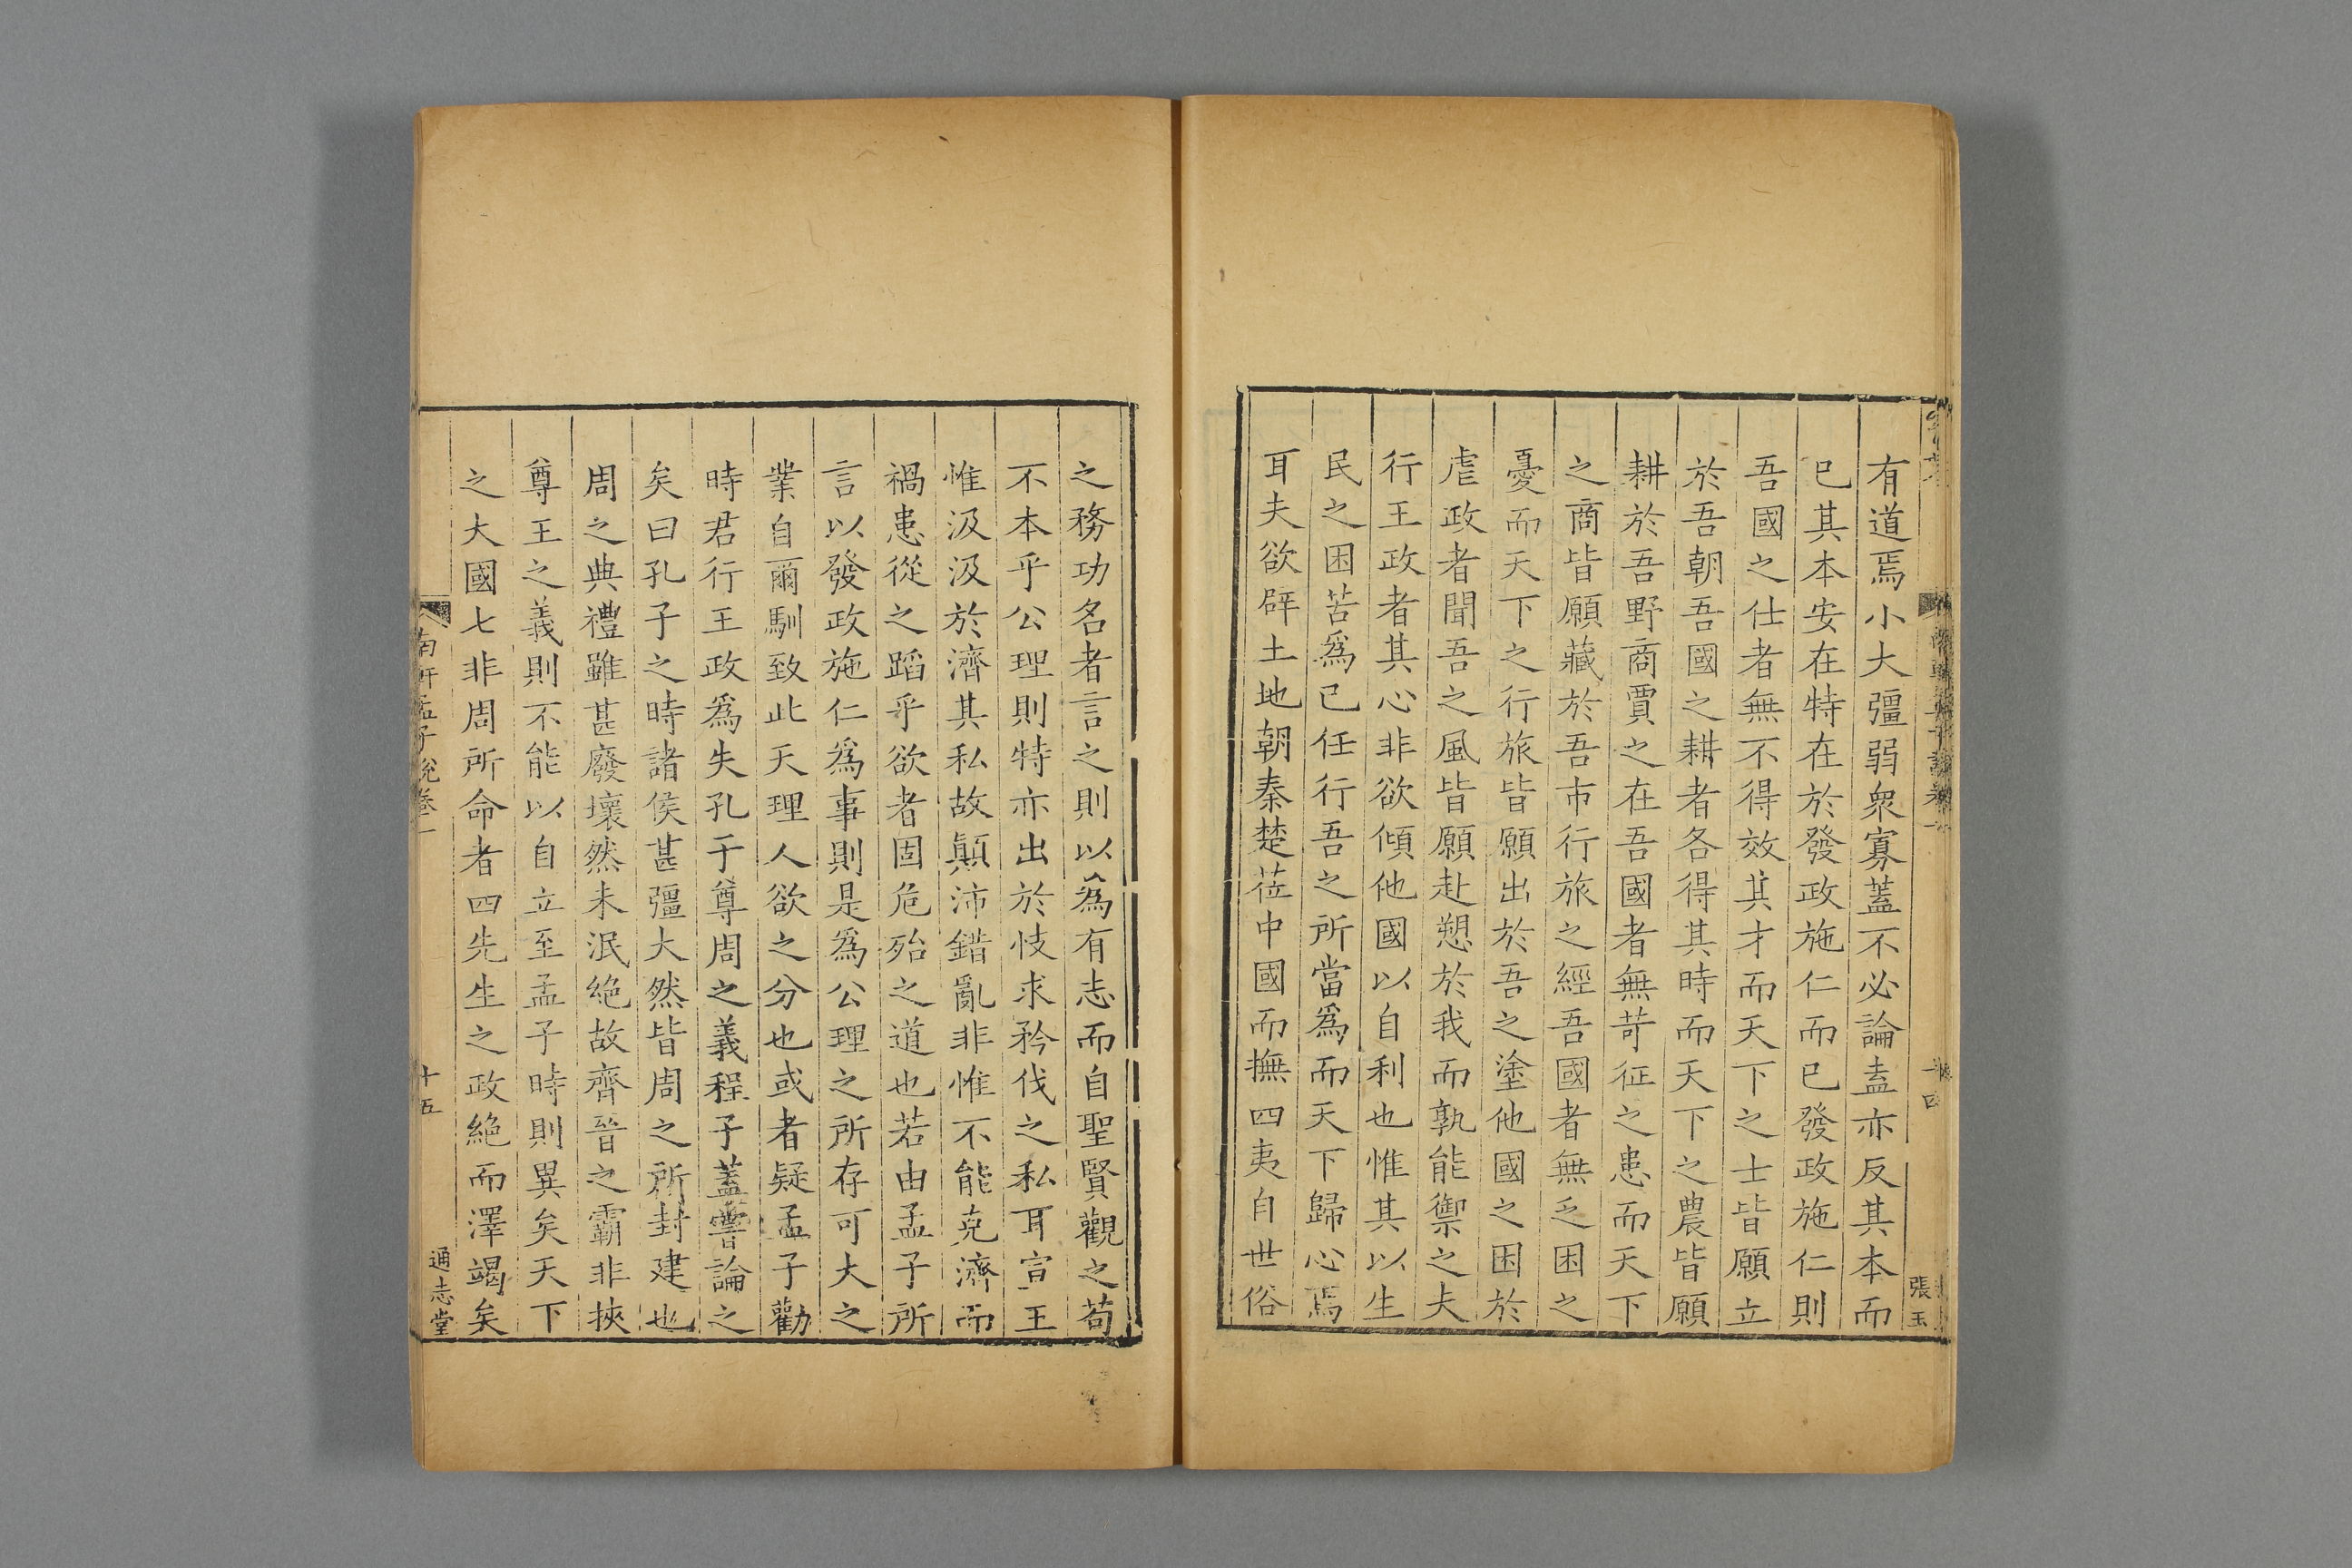 有道焉小大彊弱衆寡蓋不必論盍亦反其本而
已其本安在特在於發政施仁而已發政施仁則
吾國之仕者無不得效其才而天下之士皆願立
於吾朝吾國之耕者各得其時而天下之農皆願
耕於吾野商賈之在吾國者無苛征之患而天下
之商皆願藏於吾市行旅之經吾國者無乏困之
憂而天下之行旅皆願出於吾之塗他國之困於
虐政者聞吾之風皆願赴愬於我而孰能禦之夫
行王政者其心非欲傾他國以自利也惟其以生
民之困苦爲己任行吾之所當爲而天下歸心焉
耳夫欲辟土地朝秦楚莅中國而撫四夷自世俗
張玉
之務功名者言之則以爲有志而自聖賢觀之苟
不本乎公理則特亦出於忮求矜伐之私耳宣王
惟汲汲於濟其私故顛沛錯亂非惟不能克濟而
禍患從之蹈乎欲者固危殆之道也若由孟子所
言以發政施仁爲事則是爲公理之所存可大之
業自爾馴致此天理人欲之分也或者疑孟子勸
時君行王政爲失孔子尊周之義程子蓋嘗論之
矣曰孔子之時諸侯甚彊大然皆周之所封建也
周之典禮雖甚廢壞然未泯絶故齊晉之霸非挾
尊王之義則不能以自立至孟子時則異矣天下
之大國七非周所命者四先生之政絶而澤竭矣
南軒孟子說卷一
十五
通志堂